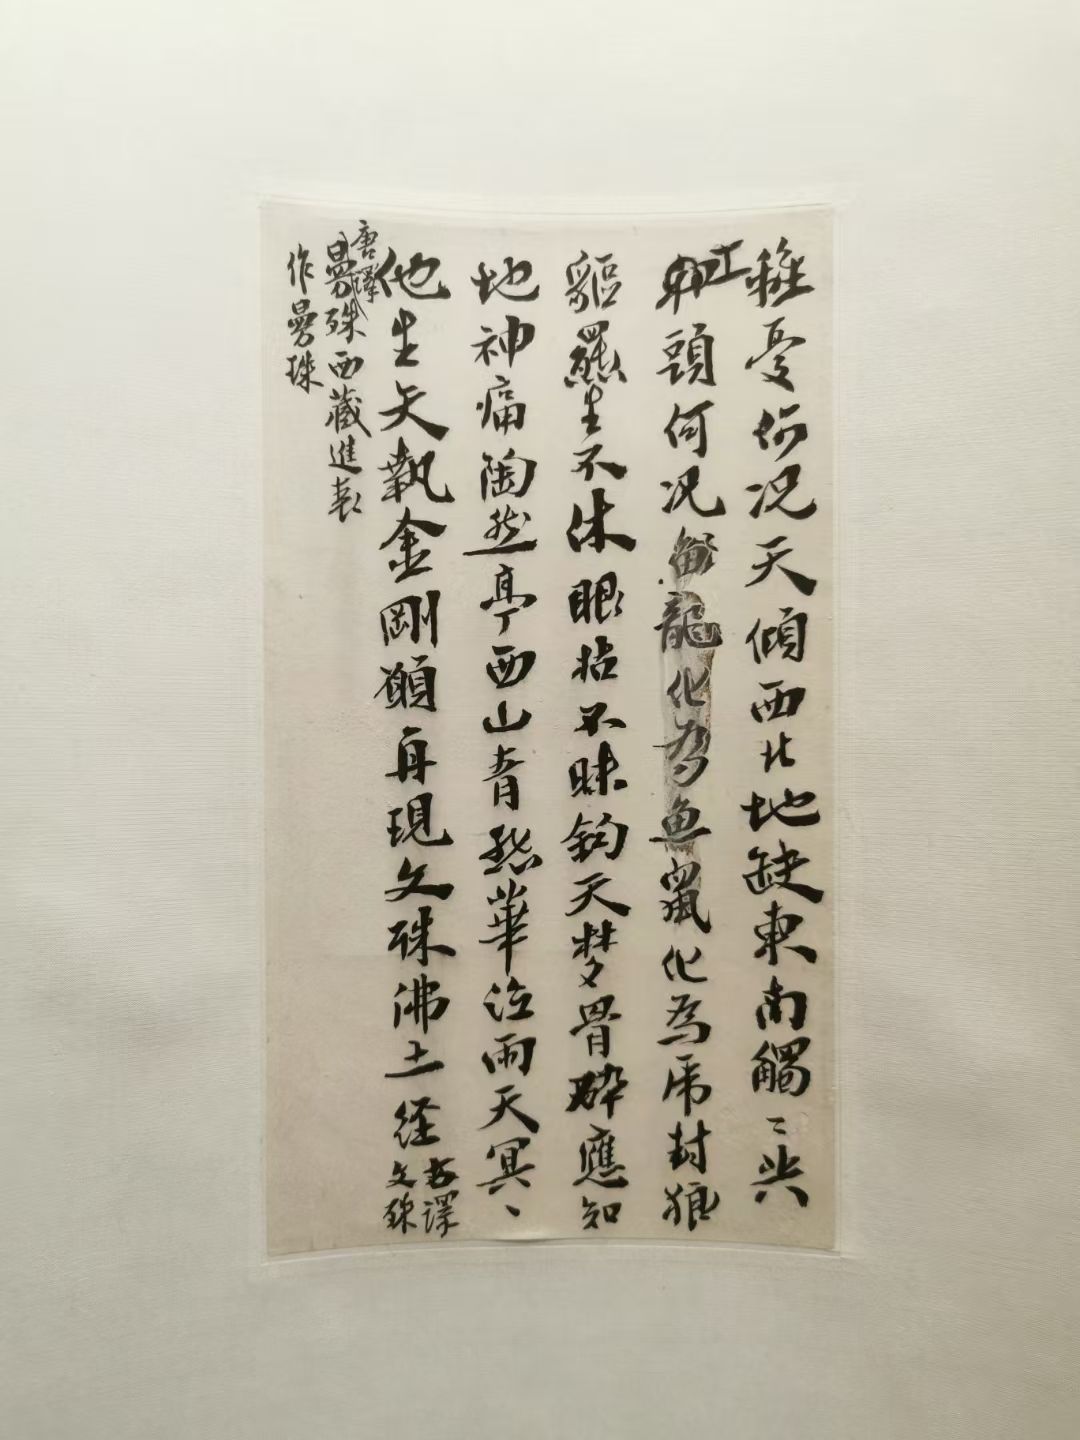 憂何况天傾西北地缺東南觸〻共
工頭何况龍化為魚鼠化為虎封狼
貙羆生不休眼枯不昧鈞天夢骨碎應知
地神痛陶然亭西山青華泣雨天冥〻
他生矢執金剛願再現文殊佛土經古譯文殊
唐譯曼殊西藏進表
作曼珠